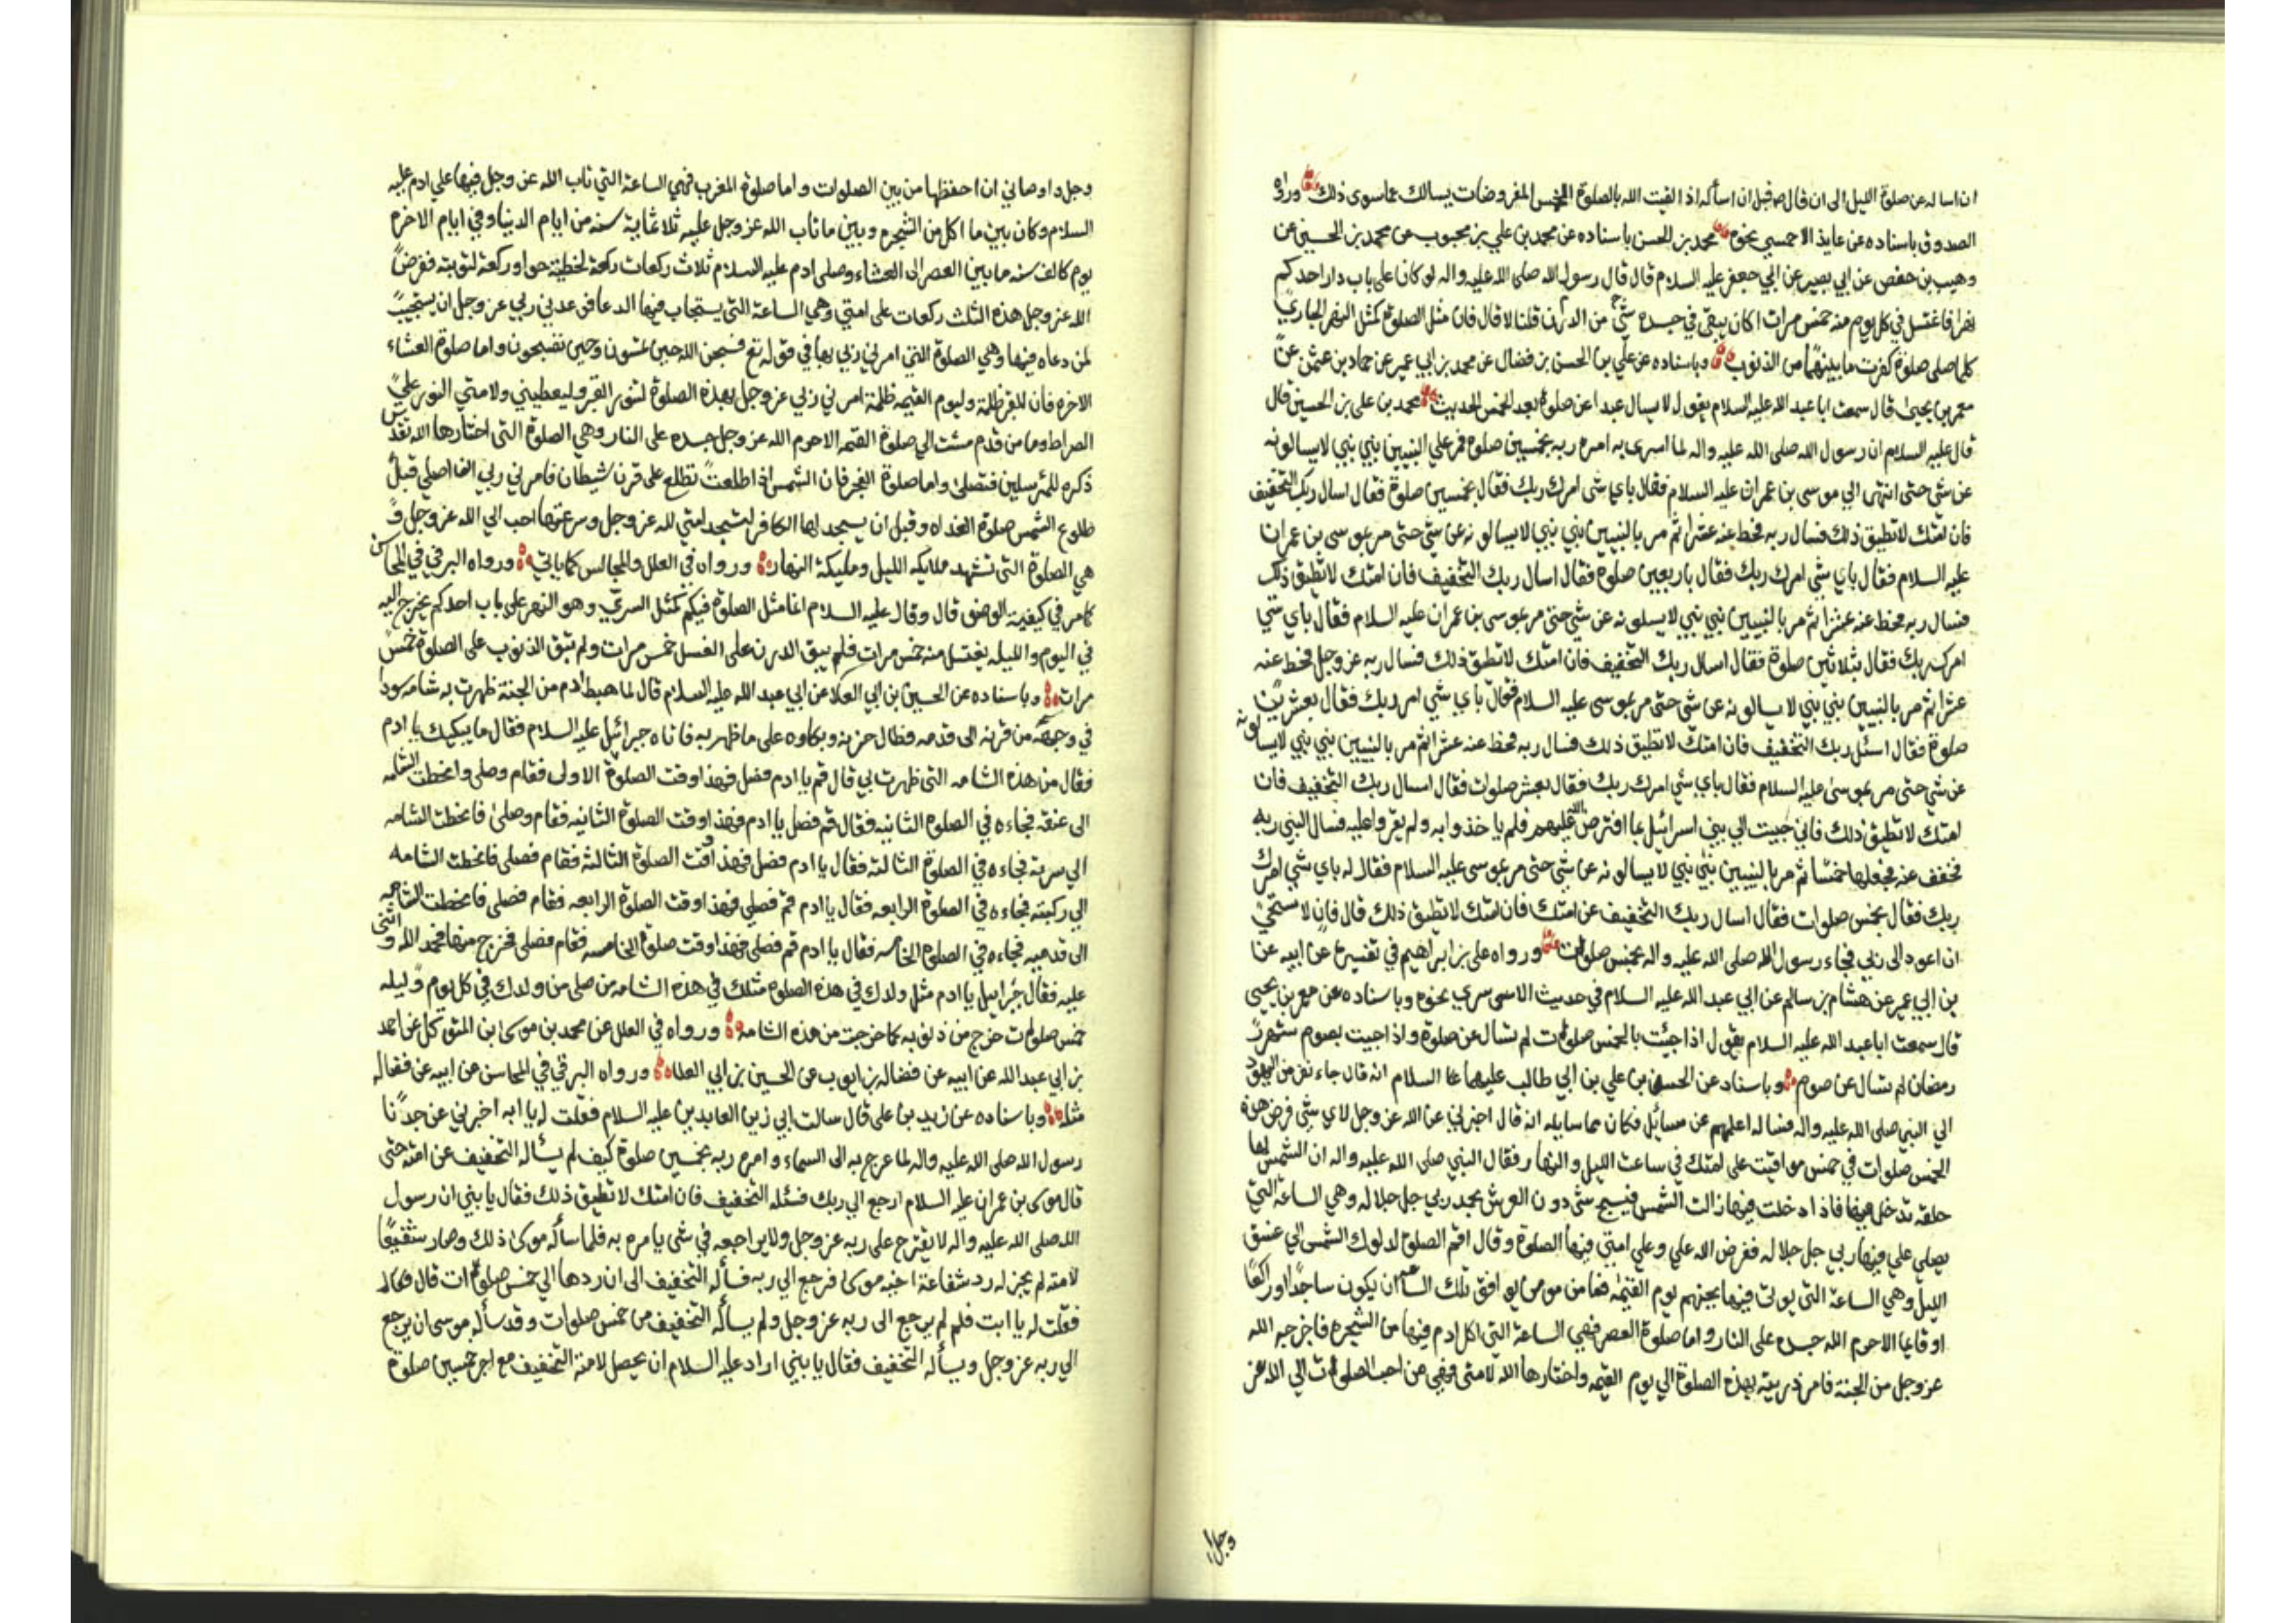 ان اساله عن صلوة الليل الى ان قال من قبل ان اسأله اذا لقيت الله بالصلوة الخمس المفروضات يسالك عما سوى ذلك ورواه
الصدوق باسناده عن عايذ الاحمسي نحوه محمد بن الحسن باسناده عن محمد بن علي بن محبوب عن محمد بن الحسين عن
وهيب بن حفص عن ابي بصير عن ابي جعفر عليه السلام قال قال رسول الله صلى الله عليه واله لو كان على باب دار احدكم
نهرا فاغتسل في كل يوم منه خمس مرات اكان يبقى في جسده شي من الدرن قلنا لا قال فان مثل الصلوة كمثل النهر الجاري
كلما صلى صلوة كفرت ما بينهما من الذنوب وباسناده عن علي بن الحسن بن فضال عن محمد بن ابي عمير عن حماد بن عثمن عن
معمر بن يحيى قال سمعت ابا عبد الله عليه السلام يقول لا يسال عبدا عن صلوة بعد الخمس الحديث محمد بن على بن الحسين قال
قال عليه السلام ان رسول الله صلى الله عليه واله لما اسرى به امره ربه بخمسين صلوة فمر علي النبيين نبي نبي لا يسالونه
عن شي حتى انتهى الي موسى بن عمران عليه السلام فقال باي شى امرك ربك فقال بخمسين صلوة فقال اسال ربك التخفيف
فان امتك لا تطيق ذلك فسال ربه فحط عنه عشرا ثم مر بالنبيين نبي نبي لا يسالونه عن شي حتى مر بموسى بن عمران
عليه السلام فقال باي شي امرك ربك فقال باربعين صلوة فقال اسال ربك التخفيف فان امتك لا تطيق ذلك
فسال ربه فحط عنه عشرا ثم مر بالنبيين نبي نبي لا يسلونه عن شي حتى مر بموسى بن عمران عليه السلام فقال باي شي
امرك ربك فقال بثلاثين صلوة فقال اسال ربك التخفيف فان امتك لا تطيق ذلك فسال ربه عز وجل فحط عنه
عشرا ثم مر بالنبيين نبي نبي لا يسالونه عن شي حتى مر بموسى عليه السلام فقال باي شي امر ربك فقال بعشرين
صلوة فقال اسئل ربك التخفيف فان امتك لا تطيق ذلك فسال ربه فحط عنه عشرا ثم مر بالنبيين نبي نبي لا يسالونه
عن شي حتى مر بموسى عليه السلام فقال باي شي امرك ربك فقال بعشر صلوات فقال اسال ربك التخفيف فان
امتك لا تطيق ذلك فاني جيت الي بني اسرائيل بما افترض الله عليهم فلم ياخذوا به ولم يقروا عليه فسال النبي ربه
فخفف عنه فجعلها خمسا ثم مر بالنبيين نبي نبي لا يسالونه عن شي حتى مر بموسى عليه السلام فقال له باي شي امرك
ربك فقال بخمس صلوات فقال اسال ربك التخفيف عن امتك فان امتك لا تطيق ذلك قال فاني لاستحي
ان اعود الى ربي فجاء رسول الله صلى الله عليه واله بخمس صلوات ورواه على بن ابراهيم في تفسيره عن ابيه عن
بن ابي عمير عن هشام بن سالم عن ابي عبد الله عليه السلام في حديث الاسرى نحوه وباسناده عن معمر بن يحيى
قال سمعت ابا عبد الله عليه السلام يقول اذا جئت بالخمس صلوات لم تسال عن صلوة واذا جيت بصوم شهر
رمضان لم تسال عن صوم وباسناد عن الحسن بن علي بن ابي طالب عليهما السلام انه قال جاء نفر من اليهود
الي النبي صلى الله عليه واله فساله اعلمهم عن مسائل فكان مما سايله انه قال اخبرني عن الله عز وجل لاي شي فرض هذه
الخمس صلوات في خمس مواقيت على امتك في ساعت الليل والنهار فقال النبي صلى الله عليه واله ان الشمس لها
حلقه تدخل فيها فاذا دخلت فيها زالت الشمس فيسبح شي دون العرش بحمد ربي جل جلاله وهي الساعة التي
يصلي علي فيها ربي جل جلاله ففرض الله علي وعلي امتي فيها الصلوة وقال اقم الصلوة لدلوك الشمس الي غسق
الليل وهي الساعة التي يوتى فيها بجهنم يوم القيمة فما من مومن يوافق تلك الساعة ان يكون ساجدا او راكعا
او قايما الا حرم الله جسده على النار واما صلوة العصر فهي الساعة التي اكل ادم فيها من الشجره فاخرجه الله
عز وجل من الجنة فامر ذريته بهذه الصلوة الي يوم القيمه واختارها الله لامتى فهي من احب الصلوات الي الله عز
وجل و
وجل واوصاني ان احفظها من بين الصلوات واما صلوة المغرب فهي الساعة التي تاب الله عز وجل فيها علي ادم عليه
السلام وكان بين ما اكل من الشجره وبين ما تاب الله عز وجل عليه ثلاثماية سنه من ايام الدنيا وفي ايام الاخره
يوم كالف سنه ما بين العصر الى العشاء وصلى ادم عليه السلام ثلاث ركعات ركعة لخطيئته حوا وركعة لتوبته ففرض
الله عز وجل هذه الثلث ركعات على امتي وهي الساعة التي يستجاب فيها الدعا فوعدني ربي عز وجل ان يستجيب
لمن دعاه فيها وهي الصلوة التي امرني ربي بها في قوله تع فسبحن الله حين تمسون وحين تصبحون واما صلوة العشاء
الاخره فان للقبر ظلمة وليوم القيمه ظلمة امرني ربي عز وجل بهذه الصلوة لتنور القبر وليعطيني ولامتي النور علي
الصراط وما من قدم مشت الي صلوة العتمه الا حرم الله عز وجل جسده على النار وهي الصلوة التي اختارها الله تقدس
ذكره للمرسلين فتصلى واما صلوة الفجر فان الشمس اذا طلعت تطلع على قرنا شيطان فامرني ربي ان اصلي قبل
طلوع الشمس صلوة الغداه وقبل ان يسجد لها الكافر لتسجد امتي لله عز وجل وسرعتها احب الي الله عز وجل و
هي الصلوة التي تشهد ملايكه الليل ومليكة النهار ورواه في العلل والمجالس كما ياتي ورواه البرقي في المحاسن
كما مر في كيفية الوضو قال وقال عليه السلام انما مثل الصلوة فيكم كمثل السري وهو النهر على باب احدكم يخرج اليه
في اليوم والليله يغتسل منه خمس مرات فلم يبق الدرن على الغسل خمس مرات ولم تبق الذنوب على الصلوة خمس
مرات وباسناده عن الحسين بن ابي العلا عن ابي عبد الله عليه السلام قال لما هبط ادم من الجنة ظهرت به شامه سودا
في وجهه من قرنه الى قدمه فطال حزنه وبكاوه على ما ظهر به فاتاه جبرائيل عليه السلام فقال ما يبكيك يا ادم
فقال من هذه الشامه التي ظهرت بي قال قم يا ادم فصل فهذا وقت الصلوة الاولى فقام وصلى وانحطت الشامه
الى عنقه فجاءه في الصلوة الثانيه فقال قم فصل يا ادم فهذا وقت الصلوة الثانيه فقام وصلى فانحطت الشامه
الي سرته فجاءه في الصلوة الثالثة فقال يا ادم فصل فهذا وقت الصلوة الثالثة فقام فصلى فانحطت الشامه
الي ركبته فجاءه في الصلوة الرابعه فقال يا ادم قم فصلي فهذا وقت الصلوة الرابعه فقام فصلى فانحطت الشامه
الى قدميه فجاءه في الصلوة الخامسه فقال يا ادم قم فصلي فهذا وقت صلوة الخامسه فقام فصلى فخرج منها فحمد الله واثنى
عليه فقال جبرايل يا ادم مثل ولدك في هذه الصلوة مثلك في هذه الشامه من صلى من ولدك في كل يوم وليله
خمس صلوات خرج من ذنوبه كما خرجت من هذه الشامه ورواه في العلل عن محمد بن موسى ابن المتوكل عن احمد
بن ابي عبد الله عن ابيه عن فضاله بن ايوب عن الحسين بن ابي العلا ورواه البرقي في المحاسن عن ابيه عن فضاله
مثله وباسناده عن زيد بن على قال سالت ابي زين العابدين عليه السلام فقلت له يا ابه اخبرني عن جدنا
رسول الله صلى الله عليه واله لما عرج به الى السماء وامره ربه بخمسين صلوة كيف لم يسأله التخفيف عن امته حتى
قال موسى بن عمران عليه السلام ارجع الي ربك فسئله التخفيف فان امتك لا تطيق ذلك فقال يا بني ان رسول
الله صلى الله عليه واله لا يقترح على ربه عز وجل ولا يراجعه في شى يامره به فلما سأله موسى ذلك وصار شفيعا
لامته لم يجز له رد شفاعة اخيه موسى فرجع الي ربه فسأله التخفيف الى ان ردها الي خمس صلوات قال
فقلت له يا ابت فلم لم يرجع الى ربه عز وجل ولم يسأله التخفيف من خمس صلوات وقد سأله موسى ان يرجع
الي ربه عز وجل ويسأله التخفيف فقال يا بني اراد عليه السلام ان يحصل لامته التخفيف مع اجر خمسين صلوة